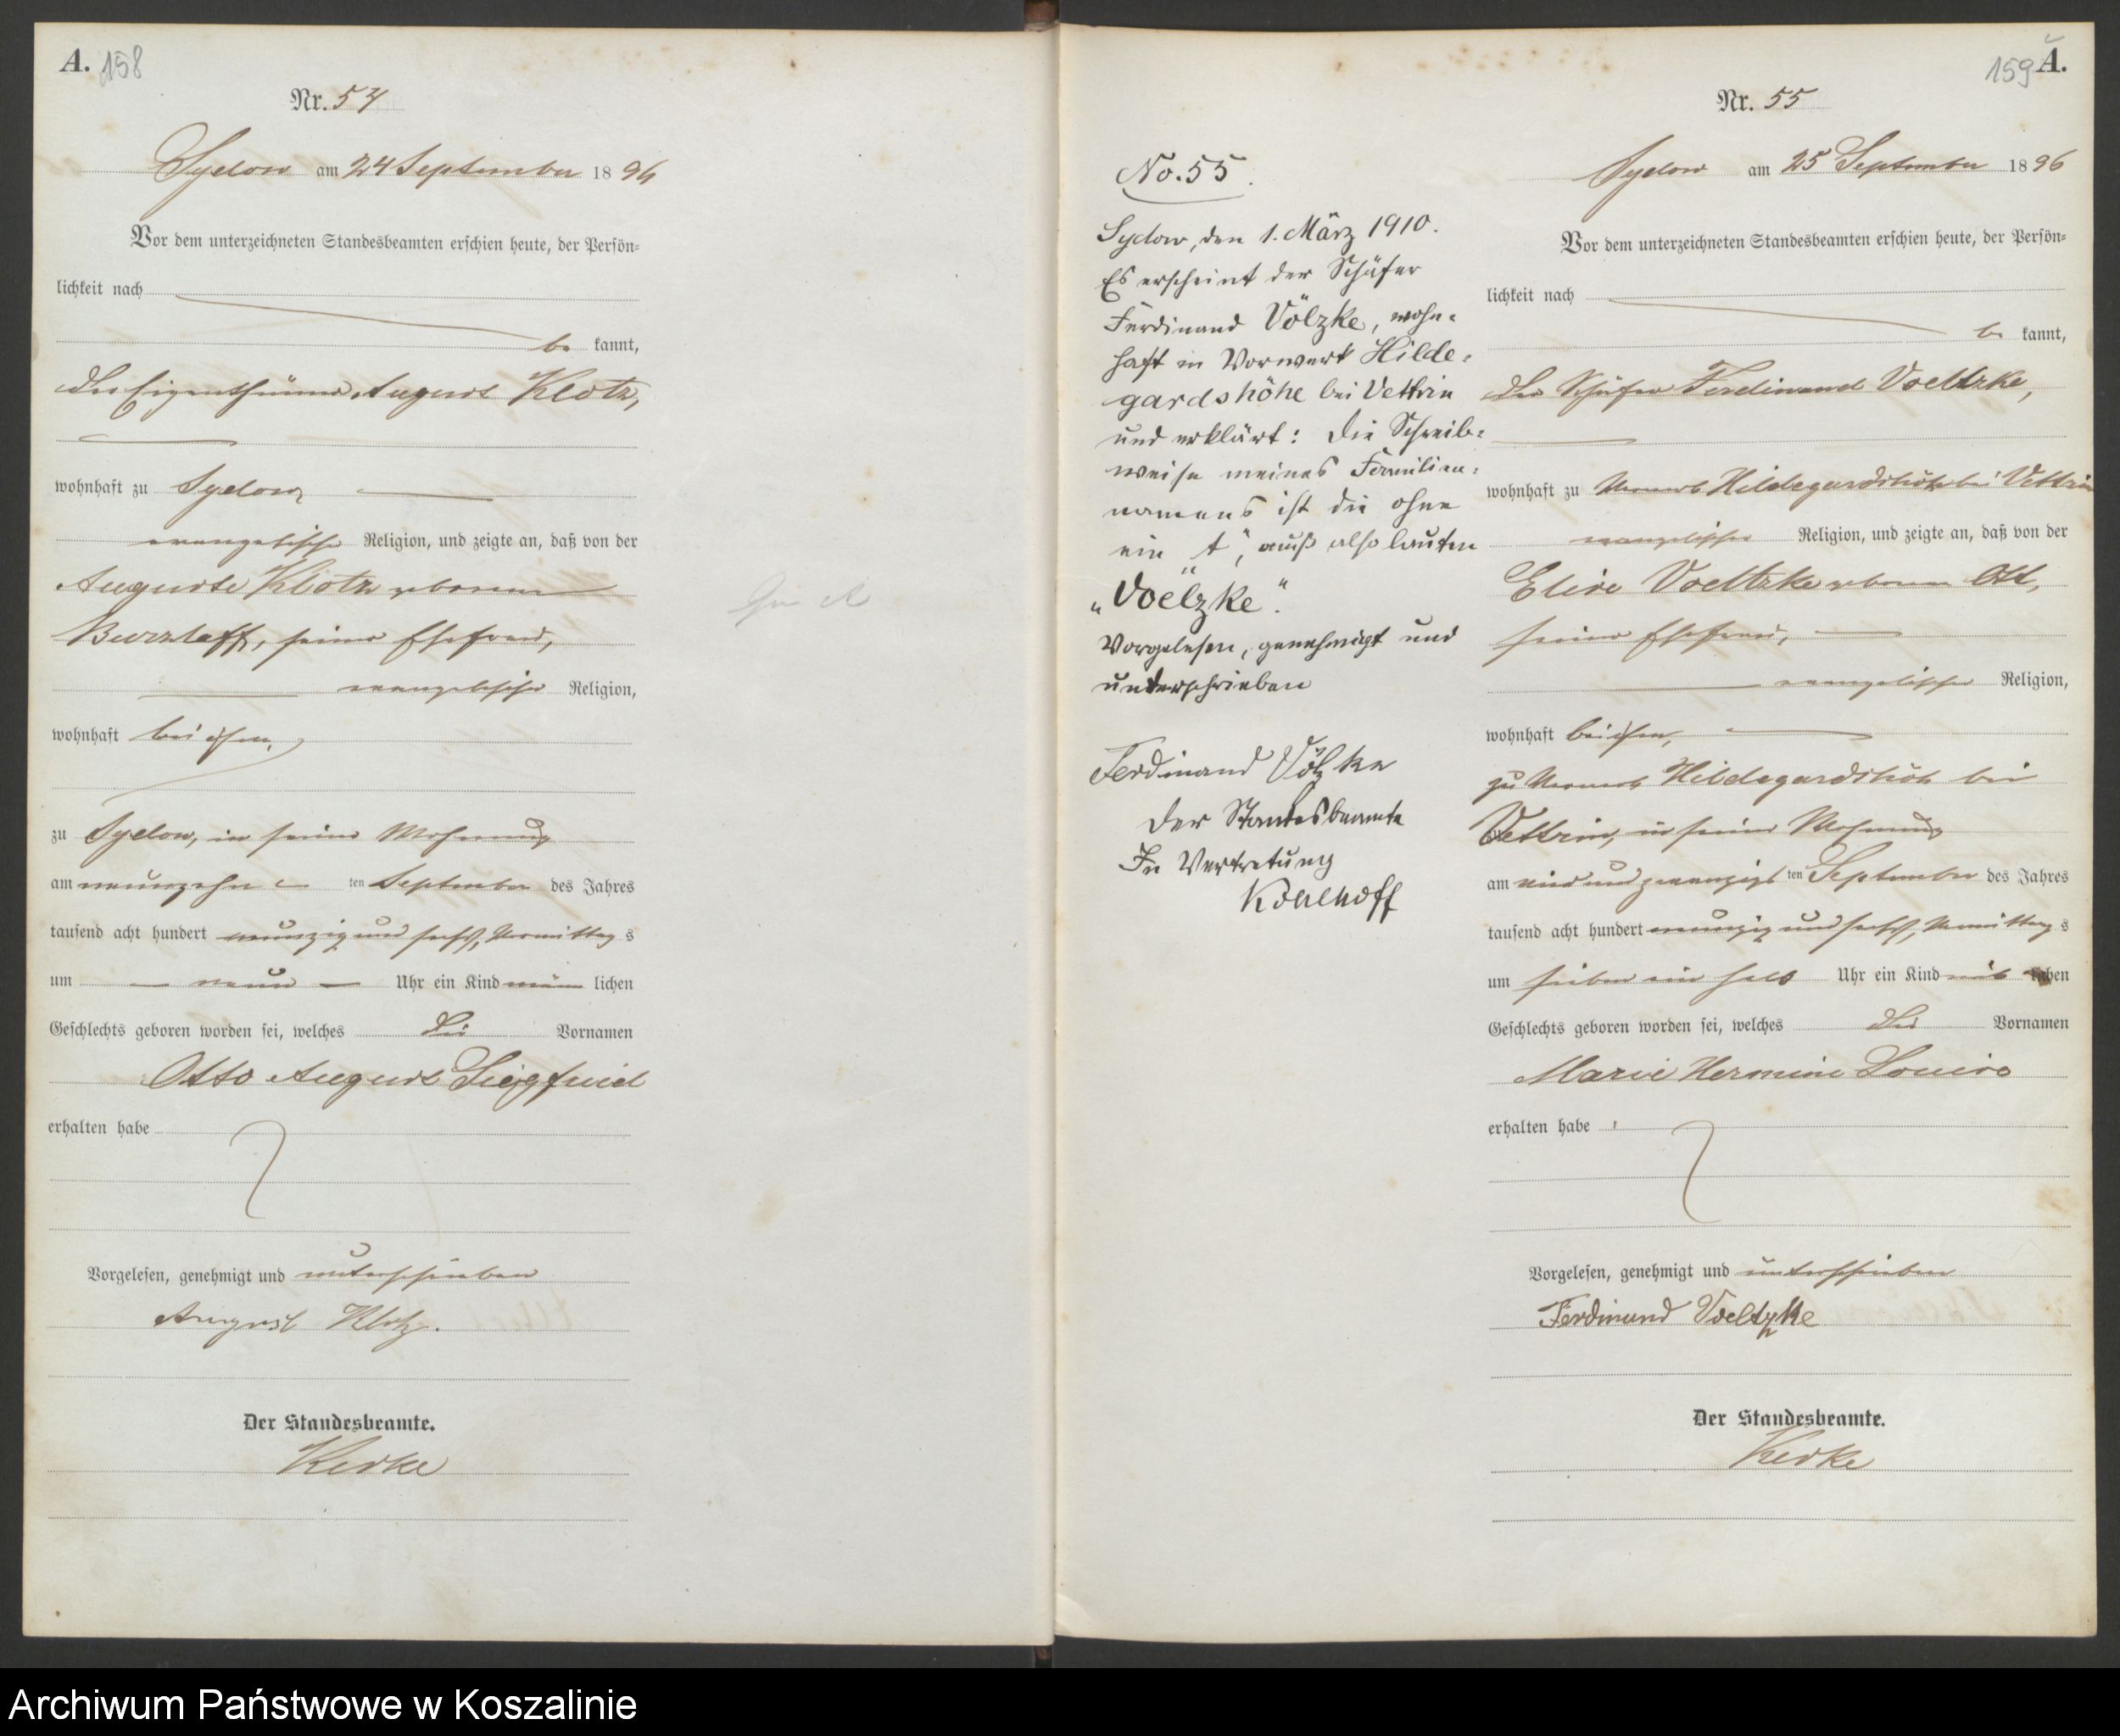 A. 158
Nr. 54
Sydow am 24 September 1896
Vor dem unterzeichneten Standesbeamten erschien heute, der Persön=
lichkeit nach
be kannt,
der Eigenthümer August Klotz,
wohnhaft zu Sydow,
evangelischer Religion, und zeigte an, daß von der
Auguste Klotz geborenen
Burzlaff, seiner Ehefrau,
evangelischer Religion,
wohnhaft bei ihm,
zu Sydow, in seiner Wohnung
am neunzehn ten September des Jahres
tausend acht hundert neunzig und sechs, Vormittag s
um neun Uhr ein Kind männ lichen
Geschlechts geboren worden sei, welches die Vornamen
Otto August Siegfried
erhalten habe
Vorgelesen, genehmigt und unterschrieben
August Klotz.
Der Standesbeamte.
Kerke
159 A.
Nr. 55
No. 55.
Sydow, den 1. März 1910.
Es erscheint der Schäfer
Ferdinand Völzke, wohn=
haft in Vorwerk Hilde=
gardshöhe bei Vettrin
und erklärt: Die Schreib=
weise meines Familien=
namens ist die ohne
ein "t", muß also lauten
„Voelzke“.
Vorgelesen, genehmigt und
unterschrieben
Ferdinand Völzke
Der Standesbeamte
In Vertretung
Sydow am 25 September 1896
Vor dem unterzeichneten Standesbeamten erschien heute, der Persön=
lichkeit nach
be kannt,
der Schäfer Ferdinand Voeltzke,
wohnhaft zu Vorwerk Hildegardshöh bei Vettrin
evangelischer Religion, und zeigte an, daß von der
Elise Voeltzke geborenen Ott,
seiner Ehefrau,
evangelischer Religion,
wohnhaft bei ihm,
zu Vorwerk Hildegardshöh bei
Vettrin, in seiner Wohnung
am vier und zwanzigs ten September des Jahres
tausend acht hundert neunzig und sechs, Vormittag s
um sieben ein halb Uhr ein Kind
Geschlechts geboren worden sei, welches die Vornamen
Marie Hermine Louise
erhalten habe
Vorgelesen, genehmigt und unterschrieben
Ferdinand Voeltzke
Der Standesbeamte.
Kerke
Archiwum Państwowe w Koszalinie